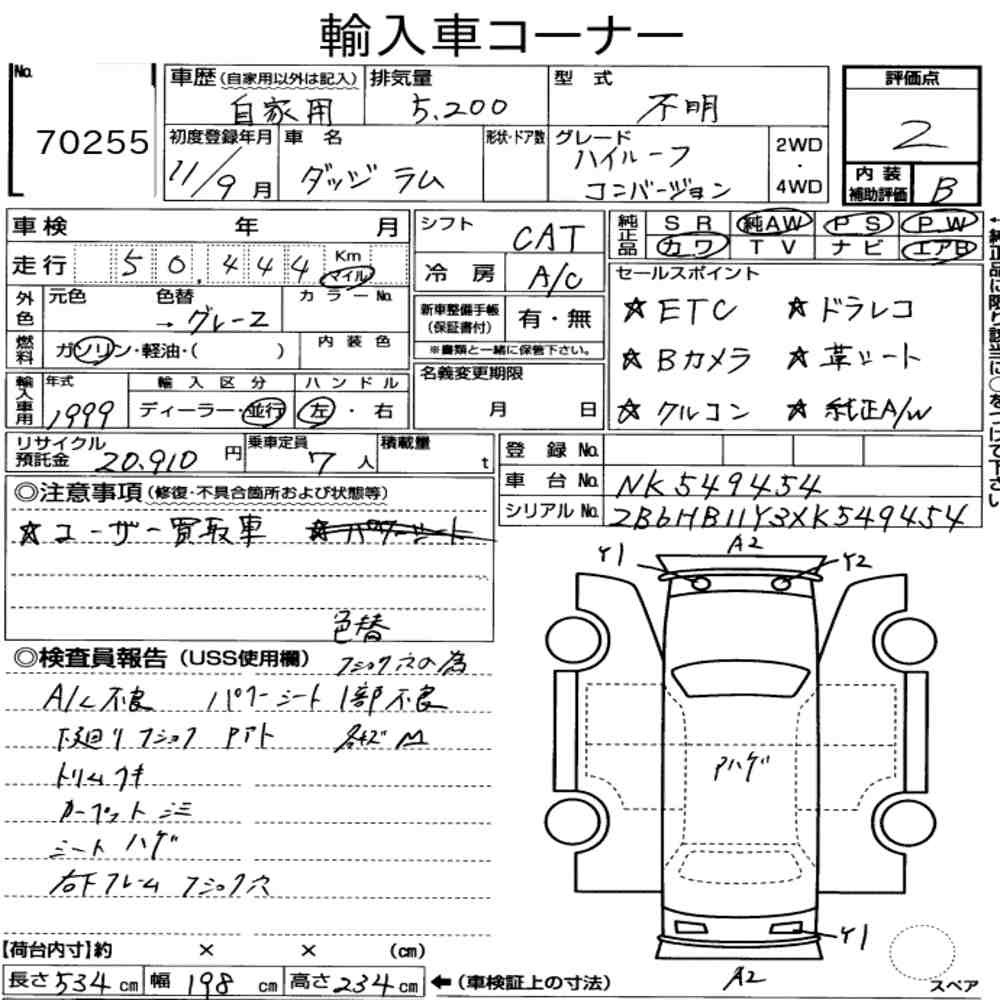 輸入車コーナー
No. 70255
車歴(自家用以外は記入) 自家用
排気量 5,200
型式 不明
評価点 2
初度登録年月 11/9月
車名 ダッジ ラム
形状・ドア数
グレード ハイルーフ コンバージョン
2WD・4WD
内装補助評価 B
車検 年 月
シフト CAT
純正品 SR 純AW PS PW
カワ TV ナビ エアB
走行 50,444 Km マイル
冷房 A/C
外色 元色 色替 カラーNo.
→グレー2
新車整備手帳(保証書付) 有・無
※書類と一緒に保管下さい。
燃料 ガソリン・軽油・( ) 内装色
セールスポイント
☆ETC ★ドラレコ
☆Bカメラ ★革シート
☆クルコン ★純正A/W
名義変更期限 月 日
輸入車用 年式 1999
輸入区分 ディーラー・並行
ハンドル 左・右
リサイクル預託金 20,910円
乗車定員 7人
積載量 t
登録No.
車台No. NK549454
シリアルNo. 2B6HB11Y3XK549454
←純正品に限り該当に○をつけて下さい
◎注意事項(修復・不具合箇所および状態等)
☆ユーザー買取車 ★パワーシート
色替
◎検査員報告(USS使用欄) フショク穴の為
A/C不良 パワーシート1部不良
下廻りフショク Pアト
トリムキ
カーペット
シート ハゲ
右下フレーム フショク穴
Y1 A2 Y2
Pハゲ
Y1
A2
スペア
【荷台内寸】約 × × (cm)
長さ534cm 幅198cm 高さ234cm ←(車検証上の寸法)